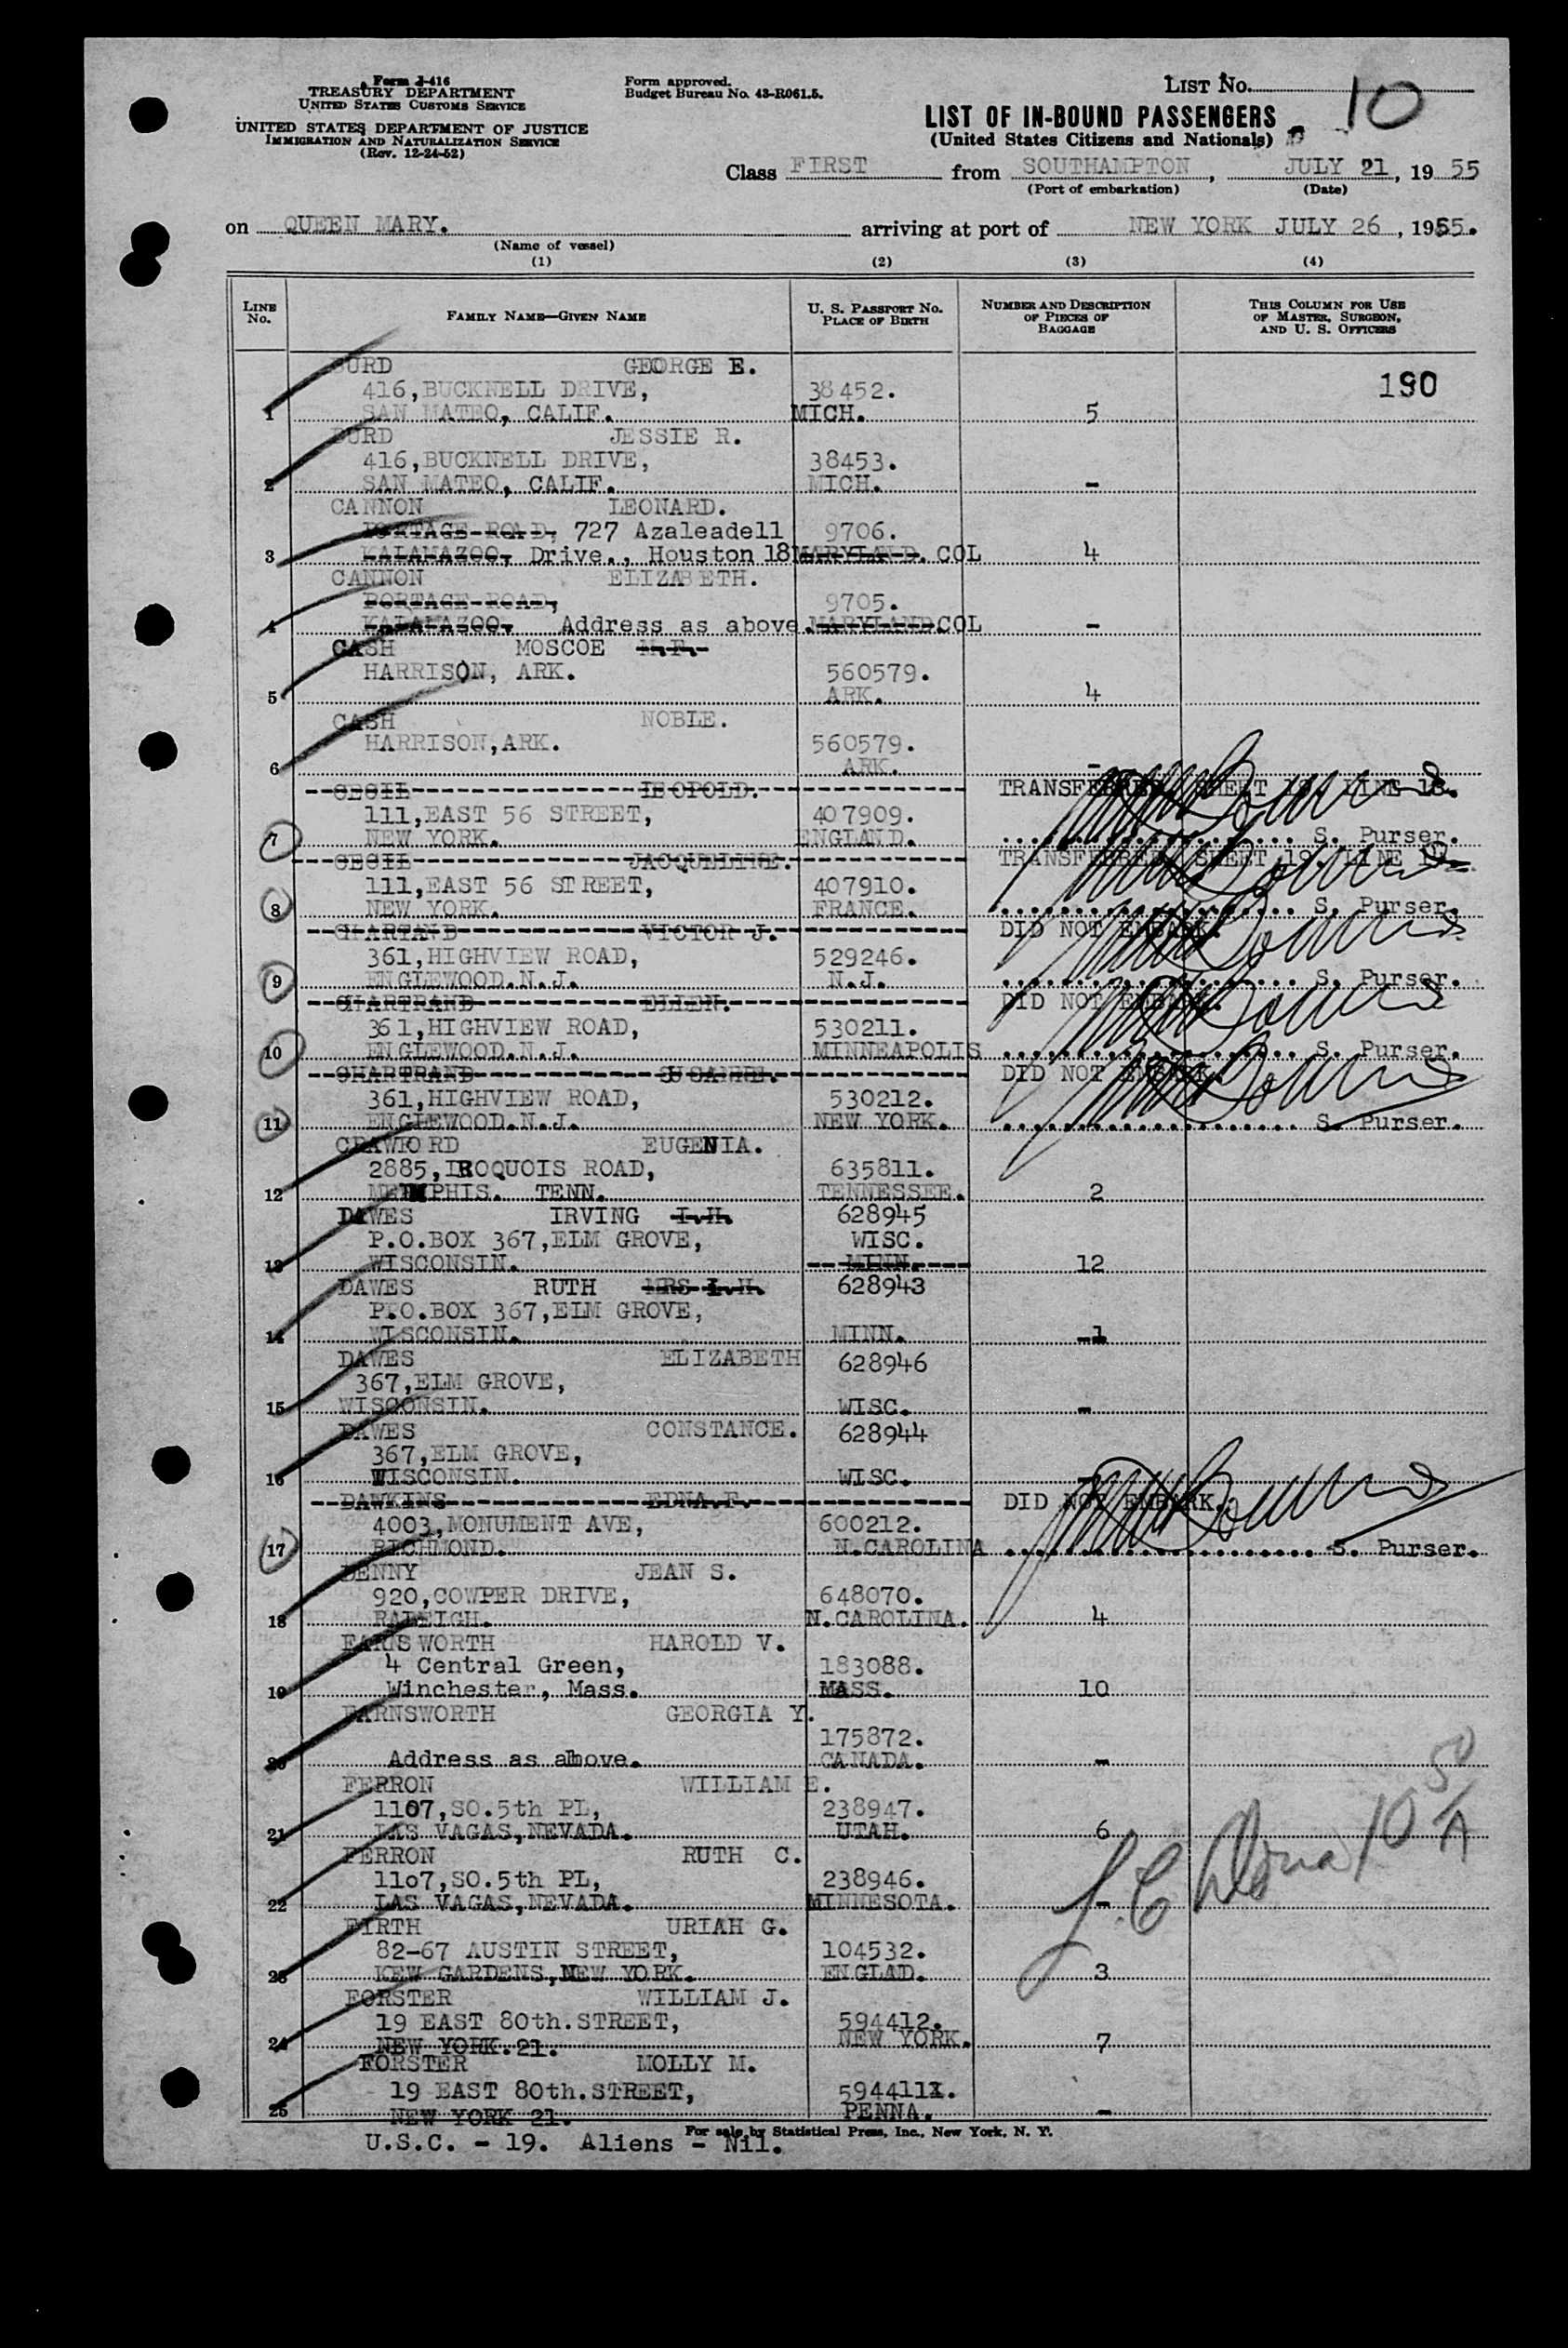 Form I-416
TREASURY DEPARTMENT
UNITED STATES CUSTOMS SERVICE
UNITED STATES DEPARTMENT OF JUSTICE
IMMIGRATION AND NATURALIZATION SERVICE
(Rev. 12-24-52)
Form approved.
Budget Bureau No. 43-R061.5.
LIST No. 10
LIST OF IN-BOUND PASSENGERS
(United States Citizens and Nationals)
Class FIRST from SOUTHAMPTON, JULY 21, 1955
(Port of embarkation) (Date)
on QUEEN MARY. arriving at port of NEW YORK JULY 26, 1955.
(Name of vessel)
(1) (2) (3) (4)
LINE No. FAMILY NAME—GIVEN NAME U. S. PASSPORT NO. PLACE OF BIRTH NUMBER AND DESCRIPTION OF PIECES OF BAGGAGE THIS COLUMN FOR USE OF MASTER, SURGEON, AND U. S. OFFICERS
BURD GEORGE E.
416,BUCKNELL DRIVE, 38452. 190
1 SAN MATEO, CALIF. MICH. 5
BURD JESSIE R.
416,BUCKNELL DRIVE, 38453.
2 SAN MATEO, CALIF. MICH. -
CANNON LEONARD.
PORTAGE ROAD, 727 Azaleadell 9706.
3 KALAMAZOO, Drive., Houston 18 MARYLAND. COL 4
CANNON ELIZABETH.
PORTAGE ROAD, 9705.
4 KALAMAZOO, Address as above. MARYLAND. COL -
CASH MOSCOE M.F.
HARRISON, ARK. 560579.
5 ARK. 4
CASH NOBLE.
HARRISON,ARK. 560579.
6 ARK. -
CECIL LEOPOLD. TRANSFERRED SHEET 19. LINE 18.
111,EAST 56 STREET, 407909.
7 NEW YORK. ENGLAND. S. Purser.
CECIL JACQUELINE. TRANSFERRED SHEET 19. LINE
111,EAST 56 STREET, 407910.
8 NEW YORK. FRANCE. S. Purser.
CHARTAND VICTOR J. DID NOT EMBARK.
361,HIGHVIEW ROAD, 529246.
9 ENGLEWOOD.N.J. N.J. S. Purser.
CHARTRAND ELLEN. DID NOT EMBARK.
361,HIGHVIEW ROAD, 530211.
10 ENGLEWOOD.N.J. MINNEAPOLIS S. Purser.
CHARTRAND SUSANNE. DID NOT EMBARK.
361,HIGHVIEW ROAD, 530212.
11 ENGLEWOOD.N.J. NEW YORK. S. Purser.
CRAWFORD EUGENIA.
2885,IROQUOIS ROAD, 635811.
12 MEMPHIS. TENN. TENNESSEE. 2
DAWES IRVING I.H. 628945
P.O.BOX 367,ELM GROVE, WISC.
13 WISCONSIN. MINN. 12
DAWES RUTH MRS I.H. 628943
P.O.BOX 367,ELM GROVE,
14 WISCONSIN. MINN. 1
DAWES ELIZABETH 628946
367,ELM GROVE,
15 WISCONSIN. WISC. -
DAWES CONSTANCE. 628944
367,ELM GROVE,
16 WISCONSIN. WISC. -
DAWKINS EDNA.F. DID NOT EMBARK.
4003,MONUMENT AVE, 600212.
17 RICHMOND. N.CAROLINA S. Purser.
DENNY JEAN S.
920,COWPER DRIVE, 648070.
18 RALEIGH. N.CAROLINA. 4
FARNSWORTH HAROLD V.
4 Central Green, 183088.
19 Winchester, Mass. MASS. 10
FARNSWORTH GEORGIA Y.
175872.
20 Address as above. CANADA. -
FERRON WILLIAM E.
1107,SO.5th PL, 238947.
21 LAS VAGAS,NEVADA. UTAH. 6
FERRON RUTH C.
11o7,SO.5th PL, 238946.
22 LAS VAGAS,NEVADA. MINNESOTA. -
FIRTH URIAH G.
82-67 AUSTIN STREET, 104532.
23 KEW GARDENS,NEW YORK. ENGLAD. 3
FORSTER WILLIAM J.
19 EAST 80th.STREET, 594412.
24 NEW YORK.21. NEW YORK. 7
FORSTER MOLLY M.
19 EAST 80th.STREET, 594411.
25 NEW YORK 21. PENNA. -
For sale by Statistical Press, Inc., New York, N. Y.
U.S.C. - 19. Aliens - Nil.